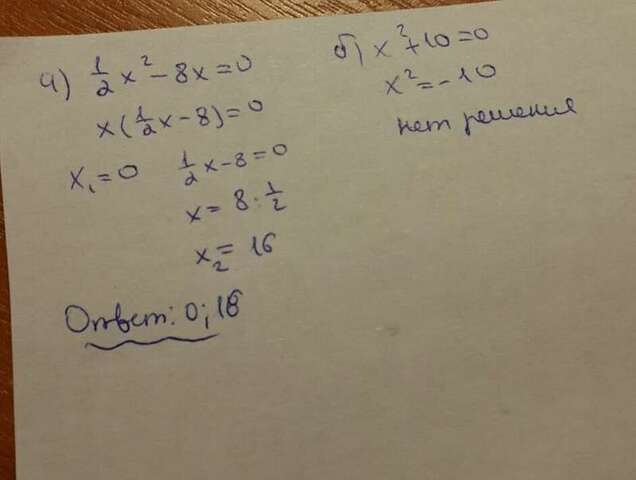 а) 1/2 x² - 8x = 0
x(1/2 x - 8) = 0
x₁ = 0   1/2 x - 8 = 0
x = 8 : 1/2
x₂ = 16
Ответ: 0; 16
б) x² + 10 = 0
x² = -10
нет решения